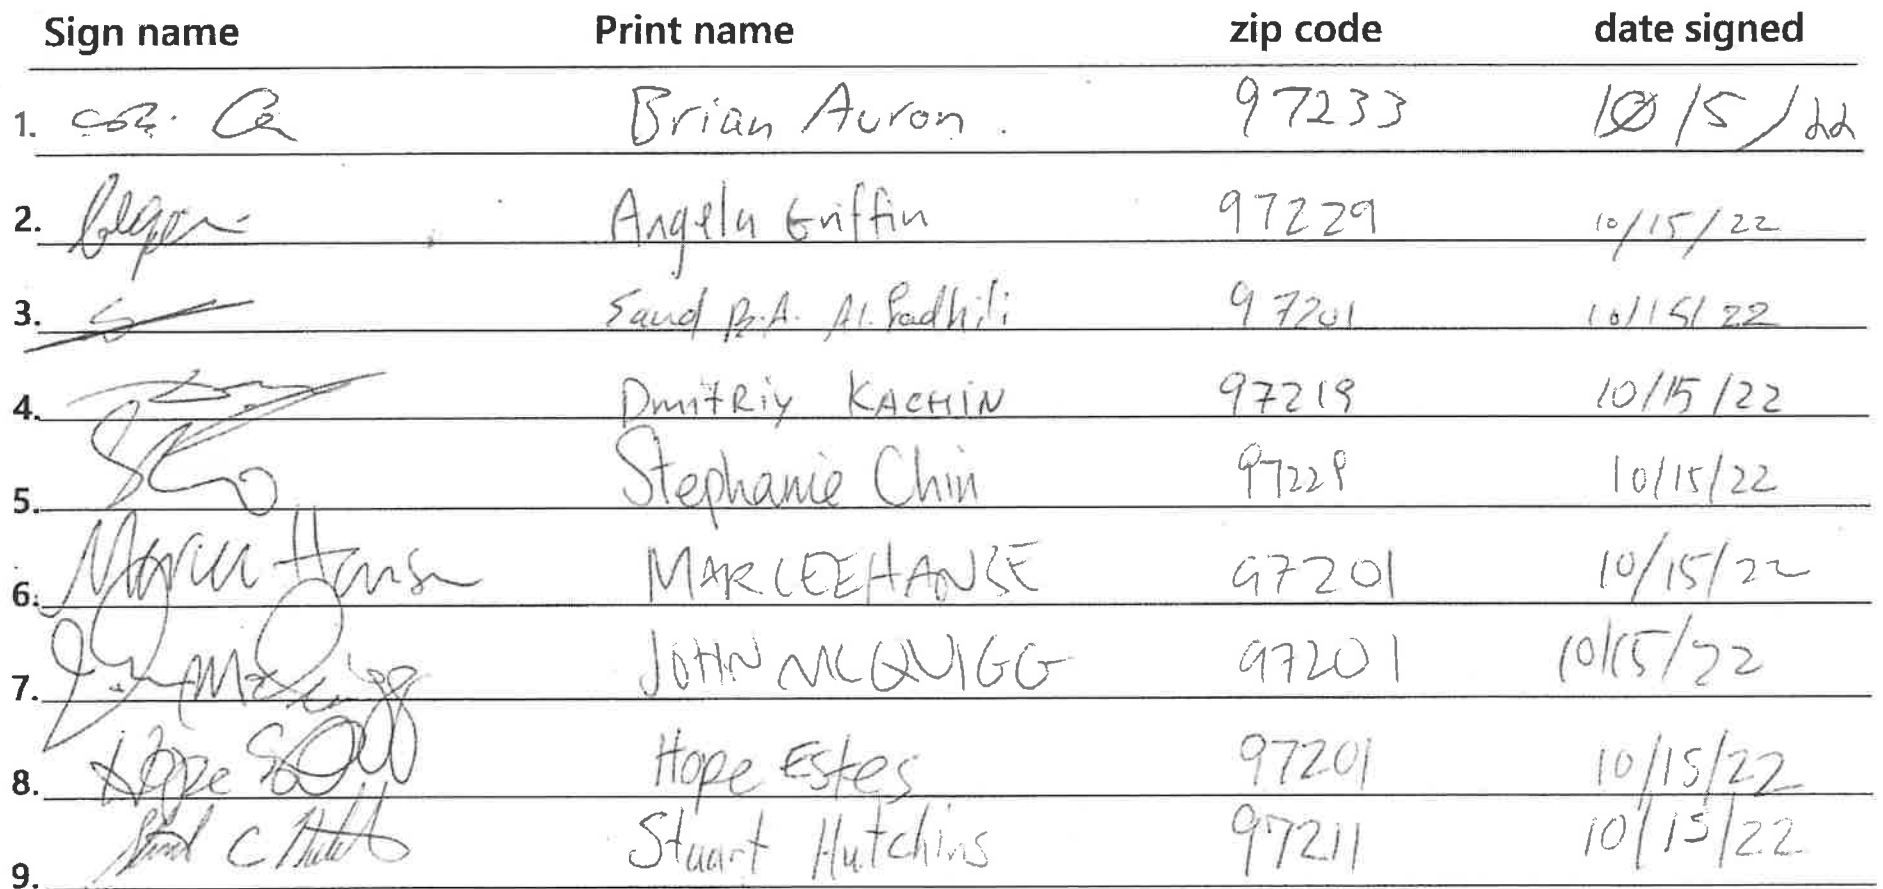 Sign name Print name zip code date signed
1. Brian Auron. 97233 10/5/22
2. Angela Griffin 97229 10/15/22
3. Saud B.A. Al. Fadhili 97201 10/15/22
4. DmitRiy KACHIN 97219 10/15/22
5. Stephanie Chin 97229 10/15/22
6. Hansen MARCEE HANSE 97201 10/15/22
7. John McQuigg JOHN MCQUIGG 97201 10/15/22
8. Hope Hope Estes 97201 10/15/22
9. C Stuart Hutchins 97211 10/15/22